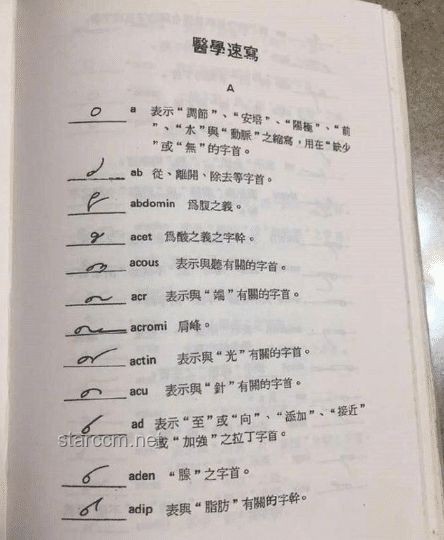 醫學速寫
A
a 表示“調節”、“安培”、“陽極”、“前
”、“水”與“動脈”之縮寫，用在“缺少
”或“無”的字首。
ab 從、離開、除去等字首。
abdomin 爲腹之義。
acet 爲酸之義之字幹。
acous 表示與聽有關的字首。
acr 表示與“端”有關的字首。
acromi 肩峰。
actin 表示與“光”有關的字首。
acu 表示與“針”有關的字首。
ad 表示“至”或“向”、“添加”、“接近”
或“加強”之拉丁字首。
starccm.net
aden “腺”之字首。
adip 表與“脂肪”有關的字幹。